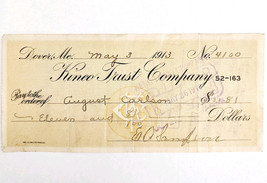 Dover, Me. May 3 1913 No. 4100
Kineo Trust Company 52-163
Pay to the order of August Carlson $
Eleven and Dollars